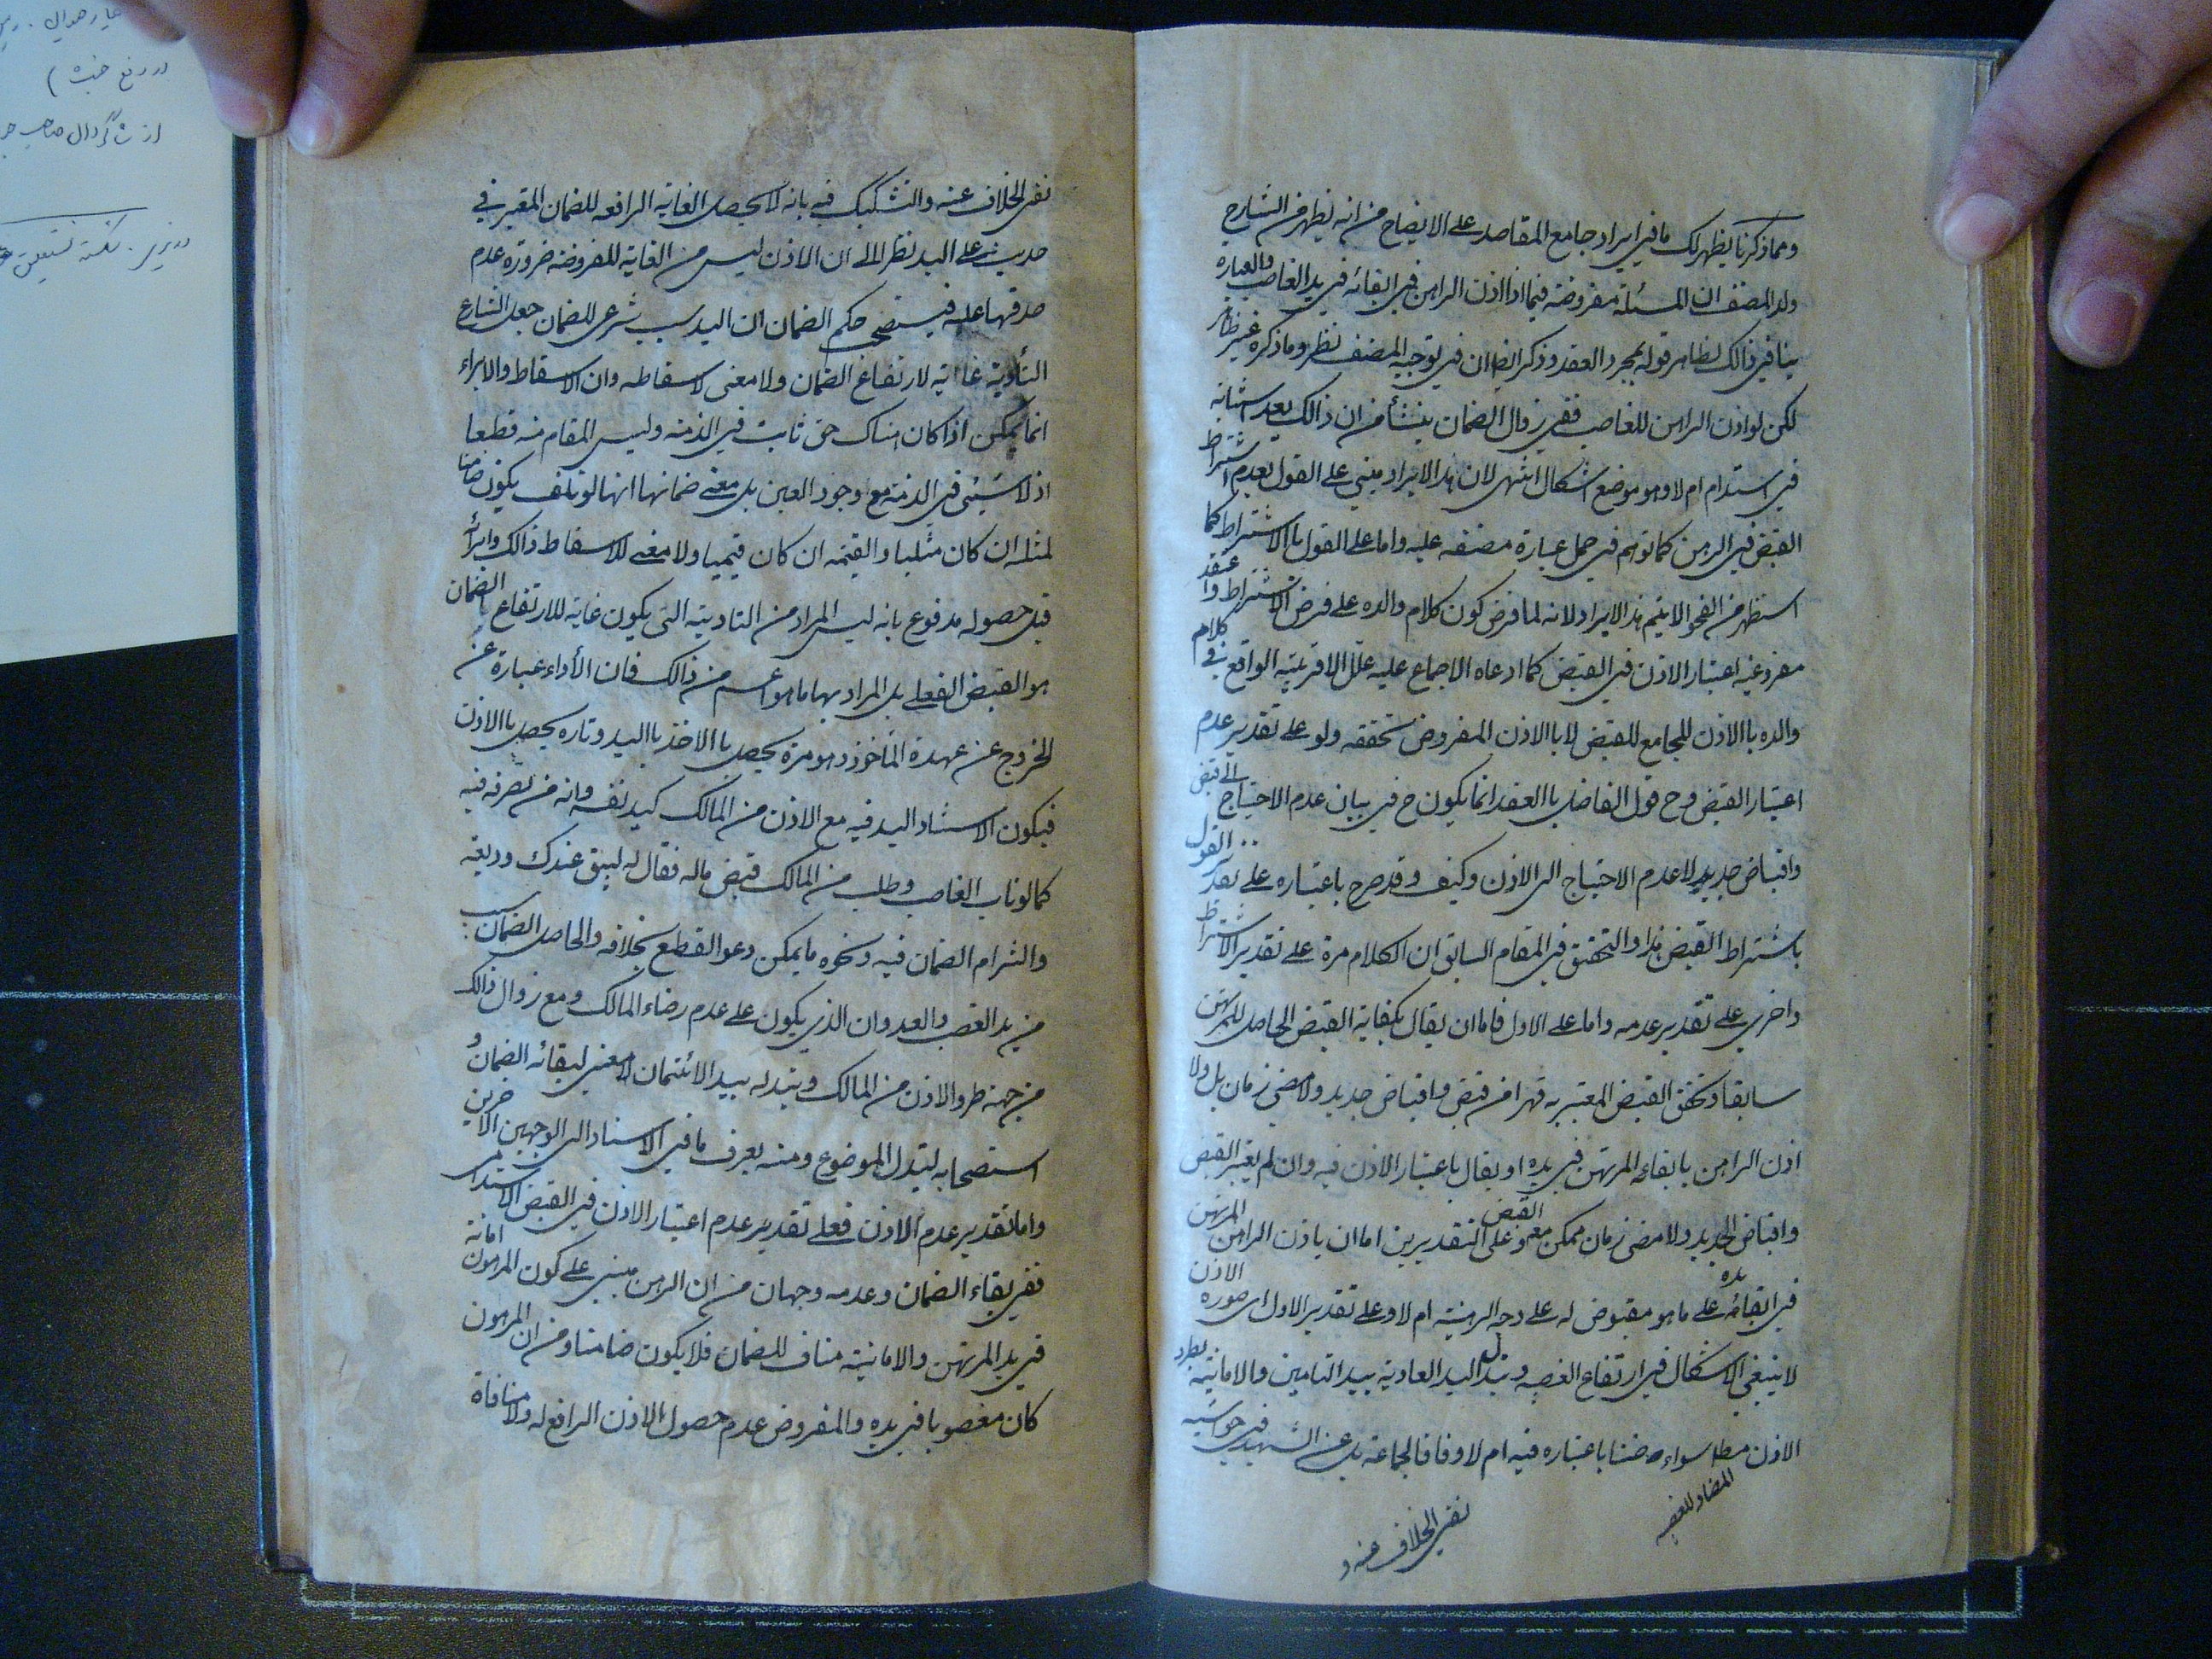 ومما ذكرنا يظهر لك ما في ايراد جامع المقاصد على الايضاح من انه يظهر من الشارح
ولد المصنف ان المسئلة مفروضة فيما اذا اذن الراهن في ابقائه في يد الغاصب والعبارة
ينافي ذالك لظاهر قوله بمجرد العقد وذكر ايضا ان في توجيه المصنف نظر وما ذكره غير ظاهر
لكن لو اذن الراهن للغاصب ففي زوال الضمان ينشأ من ان ذالك يعد استنابه
في استدام ام لا وهو موضع اشكال انتهى لان هذا الايراد مبني على القول بعدم اشتراط
القبض في الرهن كما توهم في حمل عبارة مصنفه عليه واما على القول باالاشتراط كما
استظهر من الفحو الا يتم هذا الايراد لانه لما فرض كون كلام والده على فرض الاشتراط وا عتقد
مفروغيه اعتبار الاذن في القبض كما ادعاه الاجماع عليه علل الاقربيته الواقع في كلام
والده باالاذن للجامع للقبض لا باالاذن المفروض تحققه ولو على تقدير عدم
اعتبار القبض وح قول الفاضل باالعقد انما يكون ح في بيان عدم الاحتياج الى قبض
واقباض جديد لا عدم الاحتياج الى الاذن وكيف وقد صرح باعتباره على تقدير القول
باشتراط القبض هذا والتحقيق في المقام السابق ان الكلام مرة على تقدير الاشتراط
واخرى على تقدير عدمه واما على الاول فاما ان يقال بكفاية القبض الحاصل للمرتهن
سابقا وتحقق القبض المعتبر به قهرا من قبض واقباض جديد ولا مضي زمان بل ولا
اذن الراهن بابقاءه المرتهن في يده او يقال باعتبار الاذن فيه وان لم يعتبر القبض
واقباض الجديد ولا مضى زمان ممكن معه القبض وعلى التقديرين اما ان ياذن الراهن المرتهن
في ابقائه يده على ما هو مقبوض له على وجه الرهنية ام لا وعلى تقدير الاول اى صورة الاذن
لا ينبغي الاشكال في ارتفاع الغصب وتبدل اليد العادية بيد التامين والامانية بطرد
الاذن مطلا سواء باعتباره فيه ام لا وفاقا لجماعة بل عن الشهيد في حواشيه
المضاد للغصب
نفي الخلاف عنه و
نفى الخلاف عنه والتشكيك فيه بانه لا يحصل الغاية الرافعه للضمان المقير في
حديث على اليد نظرا الى ان الاذن ليس من الغاية المفروضه ضرورة عدم
صدقها عليه فيستصحى حكم الضمان لان اليد سبب شرعى للضمان جعل الشارع
التأدية غاية لارتفاع الضمان ولا معنى لاسقاطه وان الاسقاط والابراء
انما يمكن اذا كان هناك حق ثابت في الذمه وليس المقام منه قطعا
اذ لا شيئى في الذمة مع وجود العين بل معنى ضمانها انها لو تلف يكون ضامنا
لمثله ان كان مثليا والقيمه ان كان قيميا ولا معنى للاسقاط ذالك وابرائ
قبل حصوله مدفوع بانه ليس المراد من التادية التى يكون غاية للارتفاع الضمان
هو القبض الفعلى بل المراد بها ما هو اعم من ذالك فان الأداء عبارة عن
الخروج عن عهدة المأخوذ وهو مرة يحصل باالاخذ باليد وتاره يحصل باالاذن
فيكون الاستناد اليد فيه مع الاذن من المالك كيد نفسه وانه من تصرفه فيه
كما لو تاب الغاصب وطلب من المالك قبض ماله فقال له ليبق عندك وديعة
والتزام الضمان فيه ونحوه ما يمكن دعو القطع بخلافه والحاصل الضمان سبب
من يد الغصب والعدوان الذى يكون على عدم رضاء المالك ومع زوال ذالك
من جهة طرو الاذن من المالك وتبدله بيد الائتمان لا معنى لبقائه الضمان و
استصحابه لتبدل الموضوع ومنه يعرف ما في الاستناد الى الوجهين الاخرين
واما تقدير عدم الاذن فعلى تقدير عدم اعتبار الاذن في القبض الاستدامى
ففي بقاء الضمان وعدمه وجهان من ان الرهن مبنى على كون المرهون امانة
في يد المرتهن والامانية مناف للضمان فلا يكون ضامنا ومن ان المرهون
كان مغصوبا في يده والمفروض عدم حصول الاذن الرافع له ولا منافاة